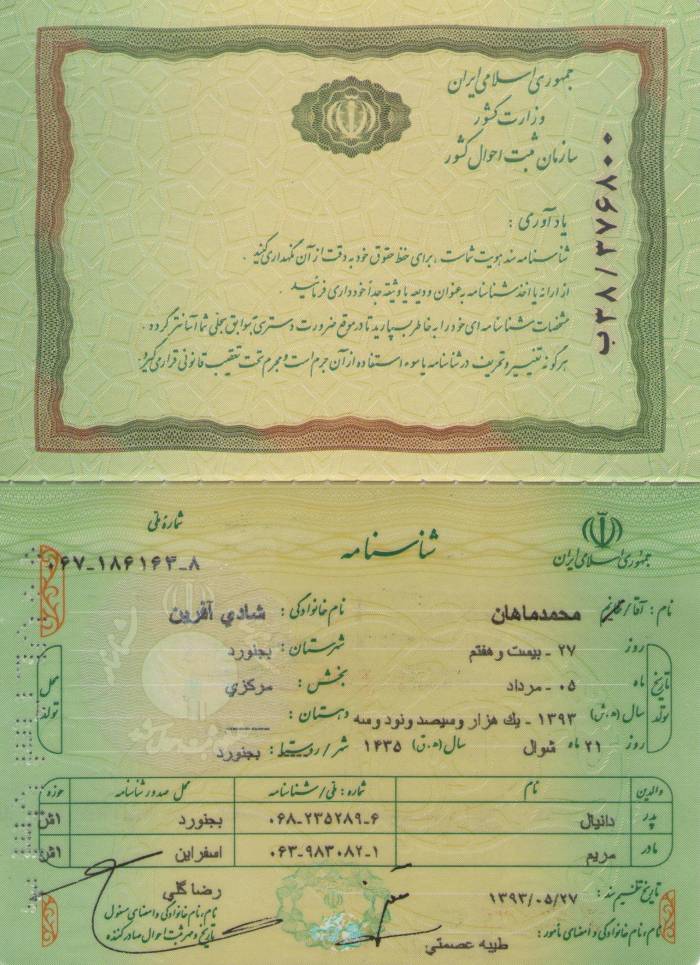 جمهوری اسلامی ایران
وزارت کشور
سازمان ثبت احوال کشور
ب۳۸/۳۷۶۸۰۰
یادآوری :
شناسنامه سند هویت شماست ، برای حفظ حقوق خود به دقت از آن نگهداری کنید .
از ارائه یا اخذ شناسنامه به عنوان ودیعه یا وثیقه جداً خودداری فرمائید .
مشخصات شناسنامه ای خود را به خاطر بسپارید تا در موقع ضرورت دسترسی بسوابق سجلی شما آسانتر گردد .
هرگونه تغییر و تحریف در شناسنامه یا سوء استفاده از آن جرم است و مجرم تحت تعقیب قانونی قرار می گیرد .
جمهوری اسلامی ایران
شناسنامه
شماره ملی
۰۶۷-۱۸۶۱۶۳-۸
نام : آقا/خانم محمدماهان نام خانوادگی : شادي آفرين
تاریخ تولد
روز ۲۷ - بيست و هفتم شهرستان : بجنورد
ماه ۰۵ - مرداد بخش : مركزي
سال (ه.ش) ۱۳۹۳ - يك هزار و سيصد و نود و سه دهستان :
روز ۲۱ ماه شوال سال (ه.ق) ۱۴۳۵ شهر/روستا : بجنورد
محل تولد
والدین نام شماره : ملی/شناسنامه محل صدور شناسنامه حوزه
پدر دانيال ۰۶۸-۲۳۵۲۸۹-۶ بجنورد
مادر مريم ۰۶۳-۹۸۳۰۸۲-۱ اسفراين
تاریخ تنظیم سند : ۱۳۹۳/۰۵/۲۷
نام ، نام خانوادگی و امضای مأمور : طيبه عصمتي
رضا گلي
نام ، نام خانوادگی و امضای مسئول
تاریخ و مهر ثبت احوال صادرکننده